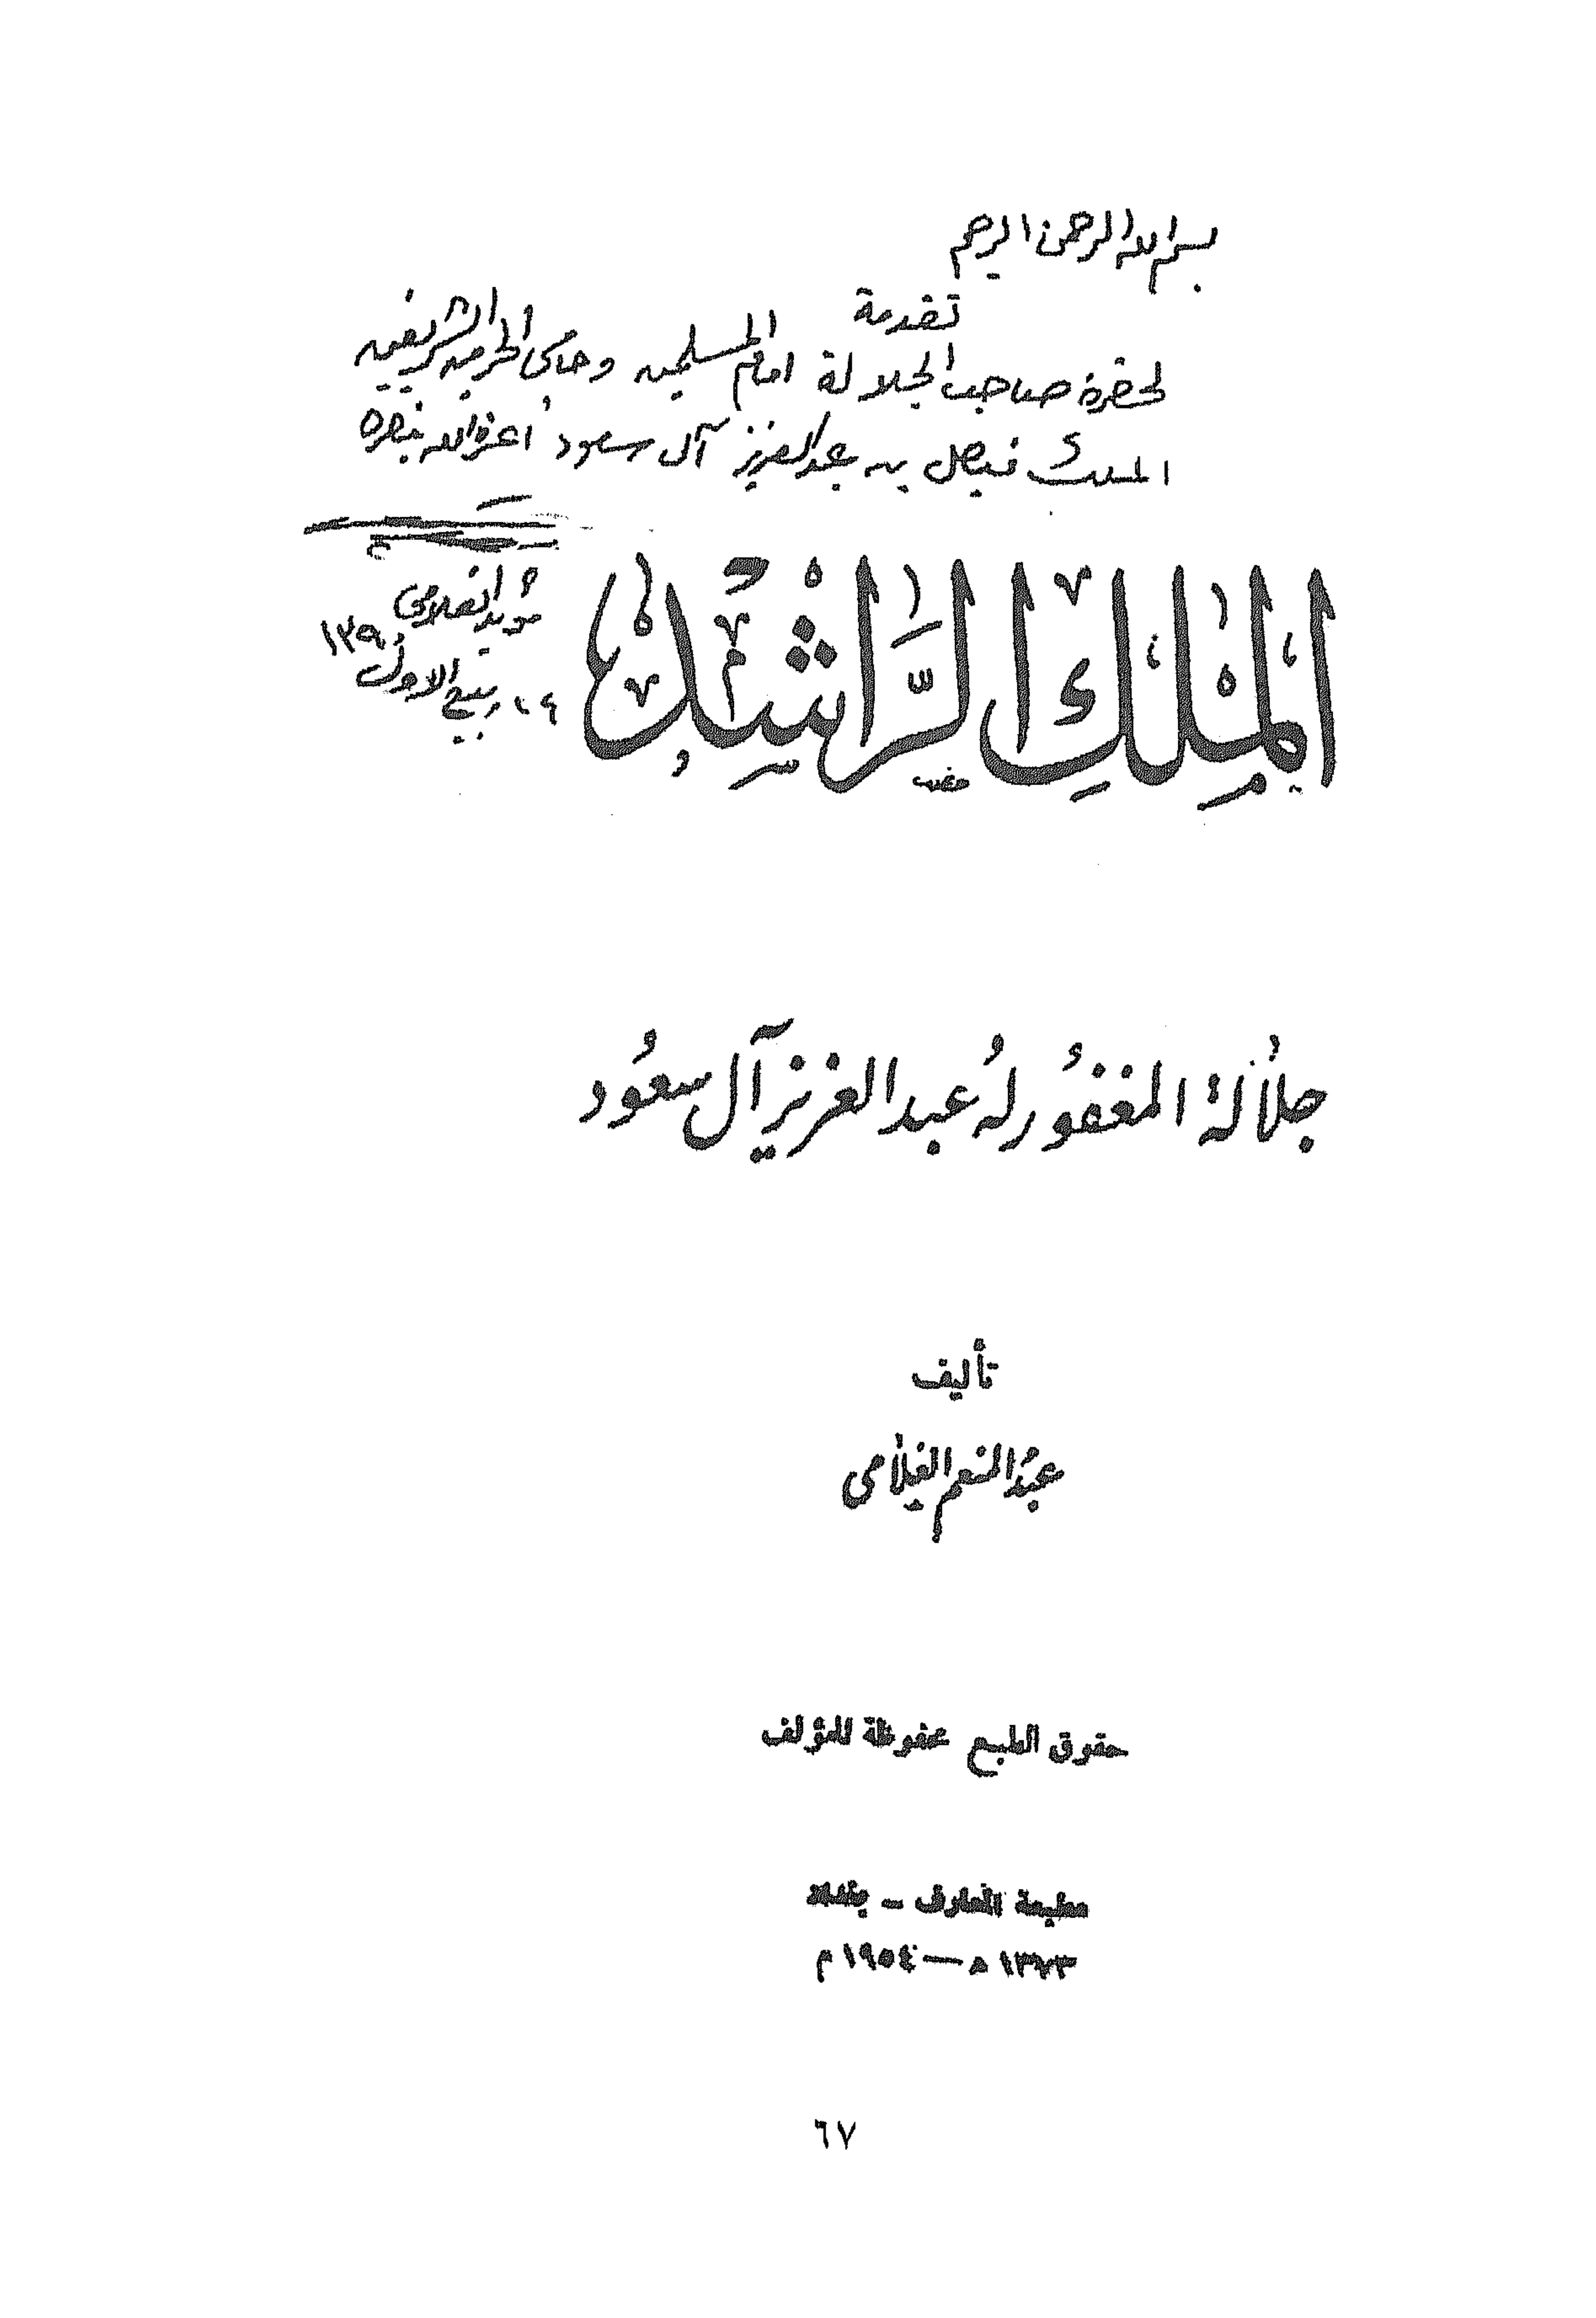 بسم الله الرحمن الرحيم
تقدمة
لحضرة صاحب الجلالة امام المسلمين وحامي الحرمين الشريفين
الملك فيصل بن عبد العزيز آل سعود أعزه الله بنصره
المَلِك الرَّاشِد
مؤيد الغلامي
٢٤ ربيع الاول ١٣٩٠
جلالة المغفُور لهُ عبد العزيز آل سعُود
تأليف
عبد المنعم الغلامي
حقوق الطبع محفوظة للمؤلف
مطبعة المعارف – بغداد
١٣٧٣ ه — ١٩٥٤ م
٦٧